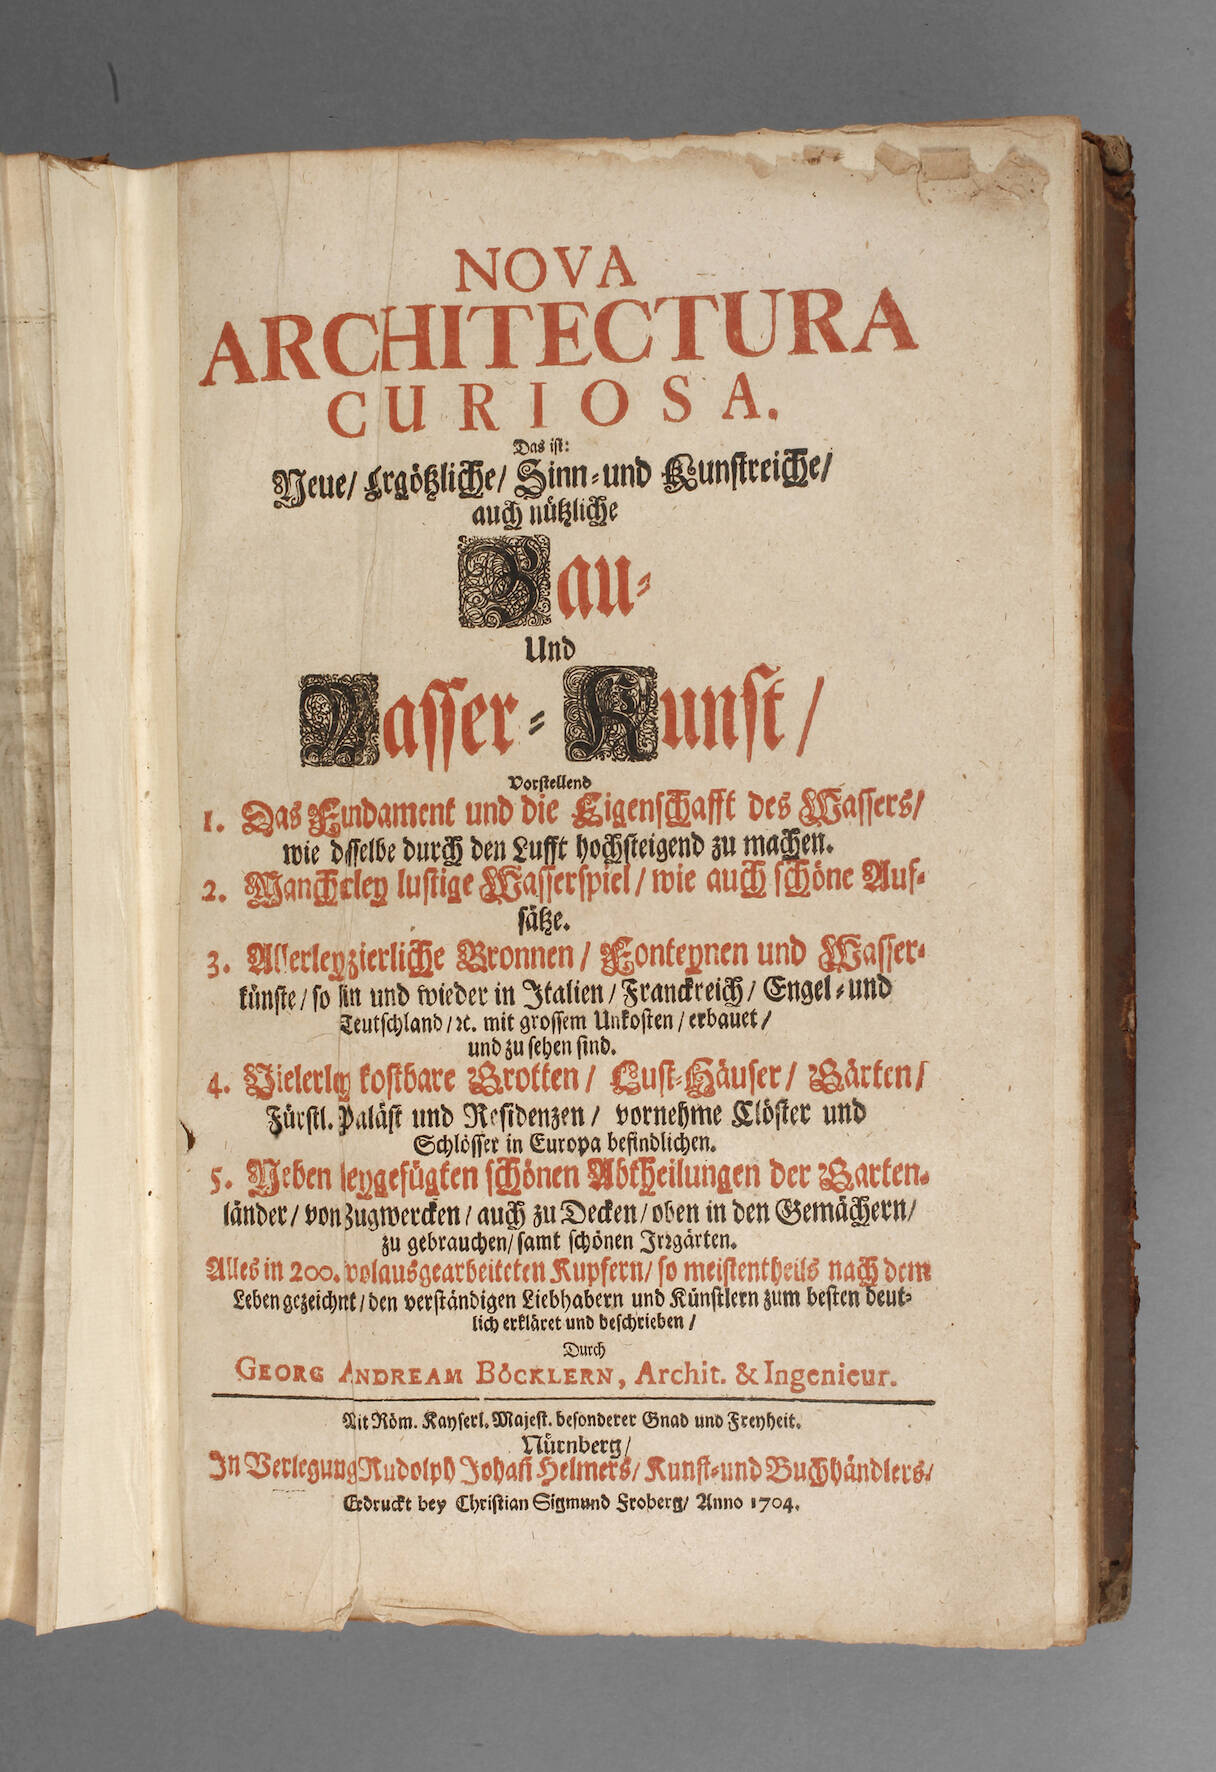 NOVA
ARCHITECTURA
CURIOSA.
Das ist:
Neue/ Ergötzliche/ Sinn- und Kunstreiche/
auch nützliche
Bau-
Und
Wasser-Kunst/
Vorstellend
1. Das Fundament und die Eigenschafft des Wassers/
wie dasselbe durch den Lufft hochsteigend zu machen.
2. Mancherley lustige Wasserspiel/ wie auch schöne Auf-
sätze.
3. Allerley zierliche Bronnen/ Fonteynen und Wasser-
künste/ so hin und wieder in Italien/ Franckreich/ Engel- und
Teutschland/ ꝛc. mit grossem Unkosten/ erbauet/
und zu sehen sind.
4. Vielerley kostbare Grotten/ Lust-Häuser/ Gärten/
Fürstl. Paläst und Residenzen/ vornehme Clöster und
Schlösser in Europa befindlichen.
5. Neben beygefügten schönen Abtheilungen der Garten-
länder/ von Zugwercken/ auch zu Decken/ oben in den Gemächern/
zu gebrauchen/ samt schönen Irrgärten.
Alles in 200. wolausgearbeiteten Kupfern/ so meistentheils nach dem
Leben gezeichnt/ den verständigen Liebhabern und Künstlern zum besten deut-
lich erkläret und beschrieben/
Durch
GEORG ANDREAM BÖCKLERN, Archit. & Ingenieur.
Mit Röm. Kayserl. Majest. besonderer Gnad und Freyheit.
Nürnberg/
In Verlegung Rudolph Johañ Helmers/ Kunst- und Buchhändlers/
Gedruckt bey Christian Sigmund Froberg/ Anno 1704.